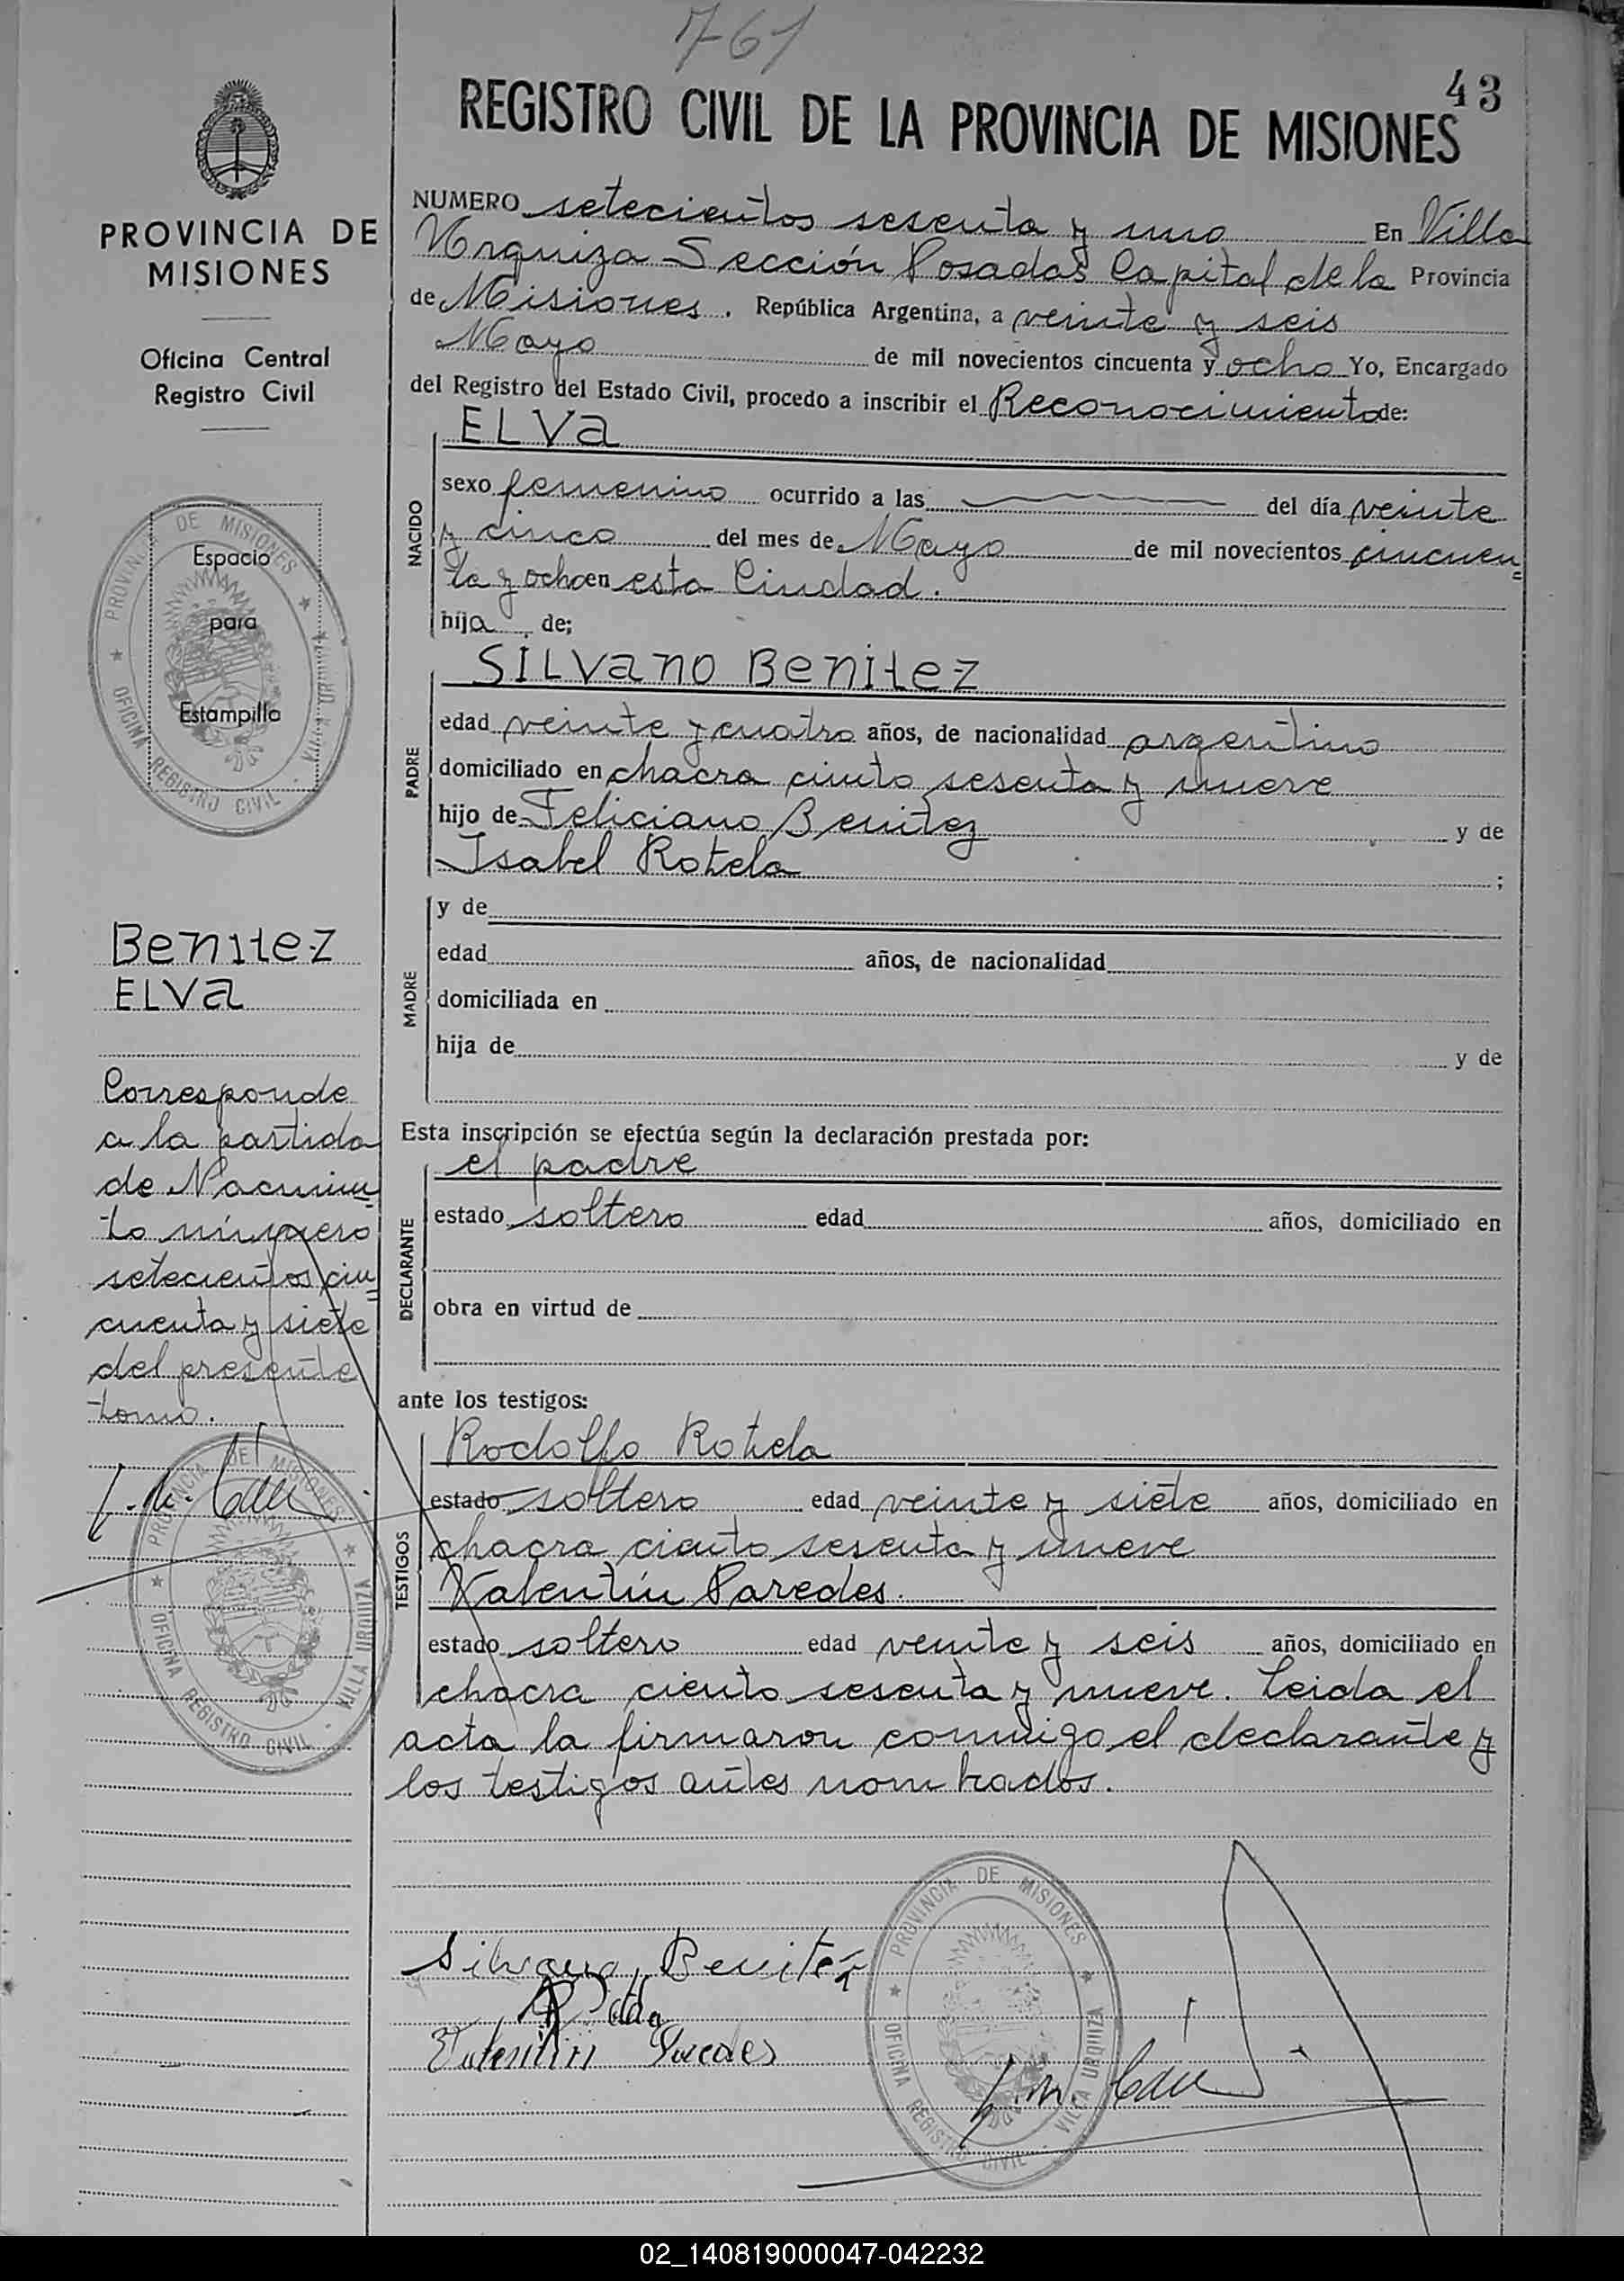 761
43
REGISTRO CIVIL DE LA PROVINCIA DE MISIONES
PROVINCIA DE
MISIONES
Oficina Central
Registro Civil
NUMERO setecientos sesenta y uno En Villa
Urquiza Sección Posadas Capital de la Provincia
de Misiones. República Argentina, a veinte y seis
Mayo de mil novecientos cincuenta y ocho Yo, Encargado
del Registro del Estado Civil, procedo a inscribir el Reconocimiento de:
NACIDO
ELVa
sexo femenino ocurrido a las del día veinte
y cinco del mes de Mayo de mil novecientos cincuen
ta y ocho en esta Ciudad.
hija de;
PROVINCIA DE MISIONES
OFICINA REGISTRO CIVIL
Espacio
para
Estampilla
PADRE
SILVano Benitez
edad veinte y cuatro años, de nacionalidad argentino
domiciliado en chacra ciento sesenta y nueve
hijo de Feliciano Benitez y de
Isabel Rotela ;
MADRE
y de
edad años, de nacionalidad
domiciliada en
hija de y de
Benitez
ELVa
Corresponde
a la partida
de Nacimien
to número
setecientos cin
cuenta y siete
del presente
tomo.
PROVINCIA DE MISIONES
OFICINA REGISTRO CIVIL - VILLA URQUIZA
Esta inscripción se efectúa según la declaración prestada por:
DECLARANTE
el padre
estado soltero edad años, domiciliado en
obra en virtud de
ante los testigos:
TESTIGOS
Rodolfo Rotela
estado soltero edad veinte y siete años, domiciliado en
chacra ciento sesenta y nueve
Valentín Paredes.
estado soltero edad veinte y seis años, domiciliado en
chacra ciento sesenta y nueve. Leida el
acta la firmaron conmigo el declarante y
los testigos antes nombrados.
Silvano Benitez
Valentin Paredes
PROVINCIA DE MISIONES
OFICINA REGISTRO CIVIL - VILLA URQUIZA
02_140819000047-042232